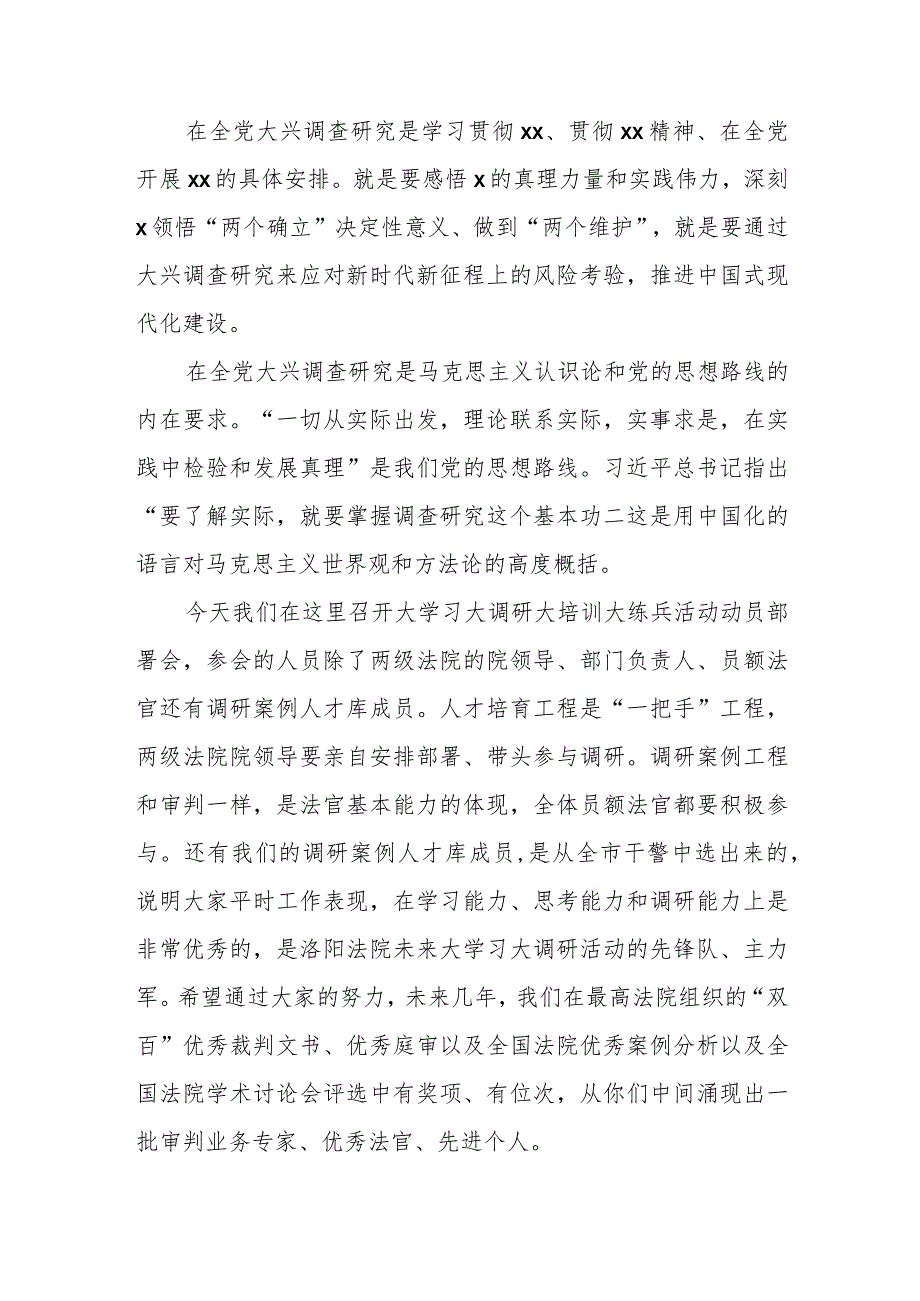 在全党大兴调查研究是学习贯彻xx、贯彻xx精神、在全党
开展xx的具体安排。就是要感悟x的真理力量和实践伟力，深刻
x领悟“两个确立”决定性意义、做到“两个维护”，就是要通过
大兴调查研究来应对新时代新征程上的风险考验，推进中国式现
代化建设。
在全党大兴调查研究是马克思主义认识论和党的思想路线的
内在要求。“一切从实际出发，理论联系实际，实事求是，在实
践中检验和发展真理”是我们党的思想路线。习近平总书记指出
“要了解实际，就要掌握调查研究这个基本功二这是用中国化的
语言对马克思主义世界观和方法论的高度概括。
今天我们在这里召开大学习大调研大培训大练兵活动动员部
署会，参会的人员除了两级法院的院领导、部门负责人、员额法
官还有调研案例人才库成员。人才培育工程是“一把手”工程，
两级法院院领导要亲自安排部署、带头参与调研。调研案例工程
和审判一样，是法官基本能力的体现，全体员额法官都要积极参
与。还有我们的调研案例人才库成员,是从全市干警中选出来的，
说明大家平时工作表现，在学习能力、思考能力和调研能力上是
非常优秀的，是洛阳法院未来大学习大调研活动的先锋队、主力
军。希望通过大家的努力，未来几年，我们在最高法院组织的“双
百”优秀裁判文书、优秀庭审以及全国法院优秀案例分析以及全
国法院学术讨论会评选中有奖项、有位次，从你们中间涌现出一
批审判业务专家、优秀法官、先进个人。